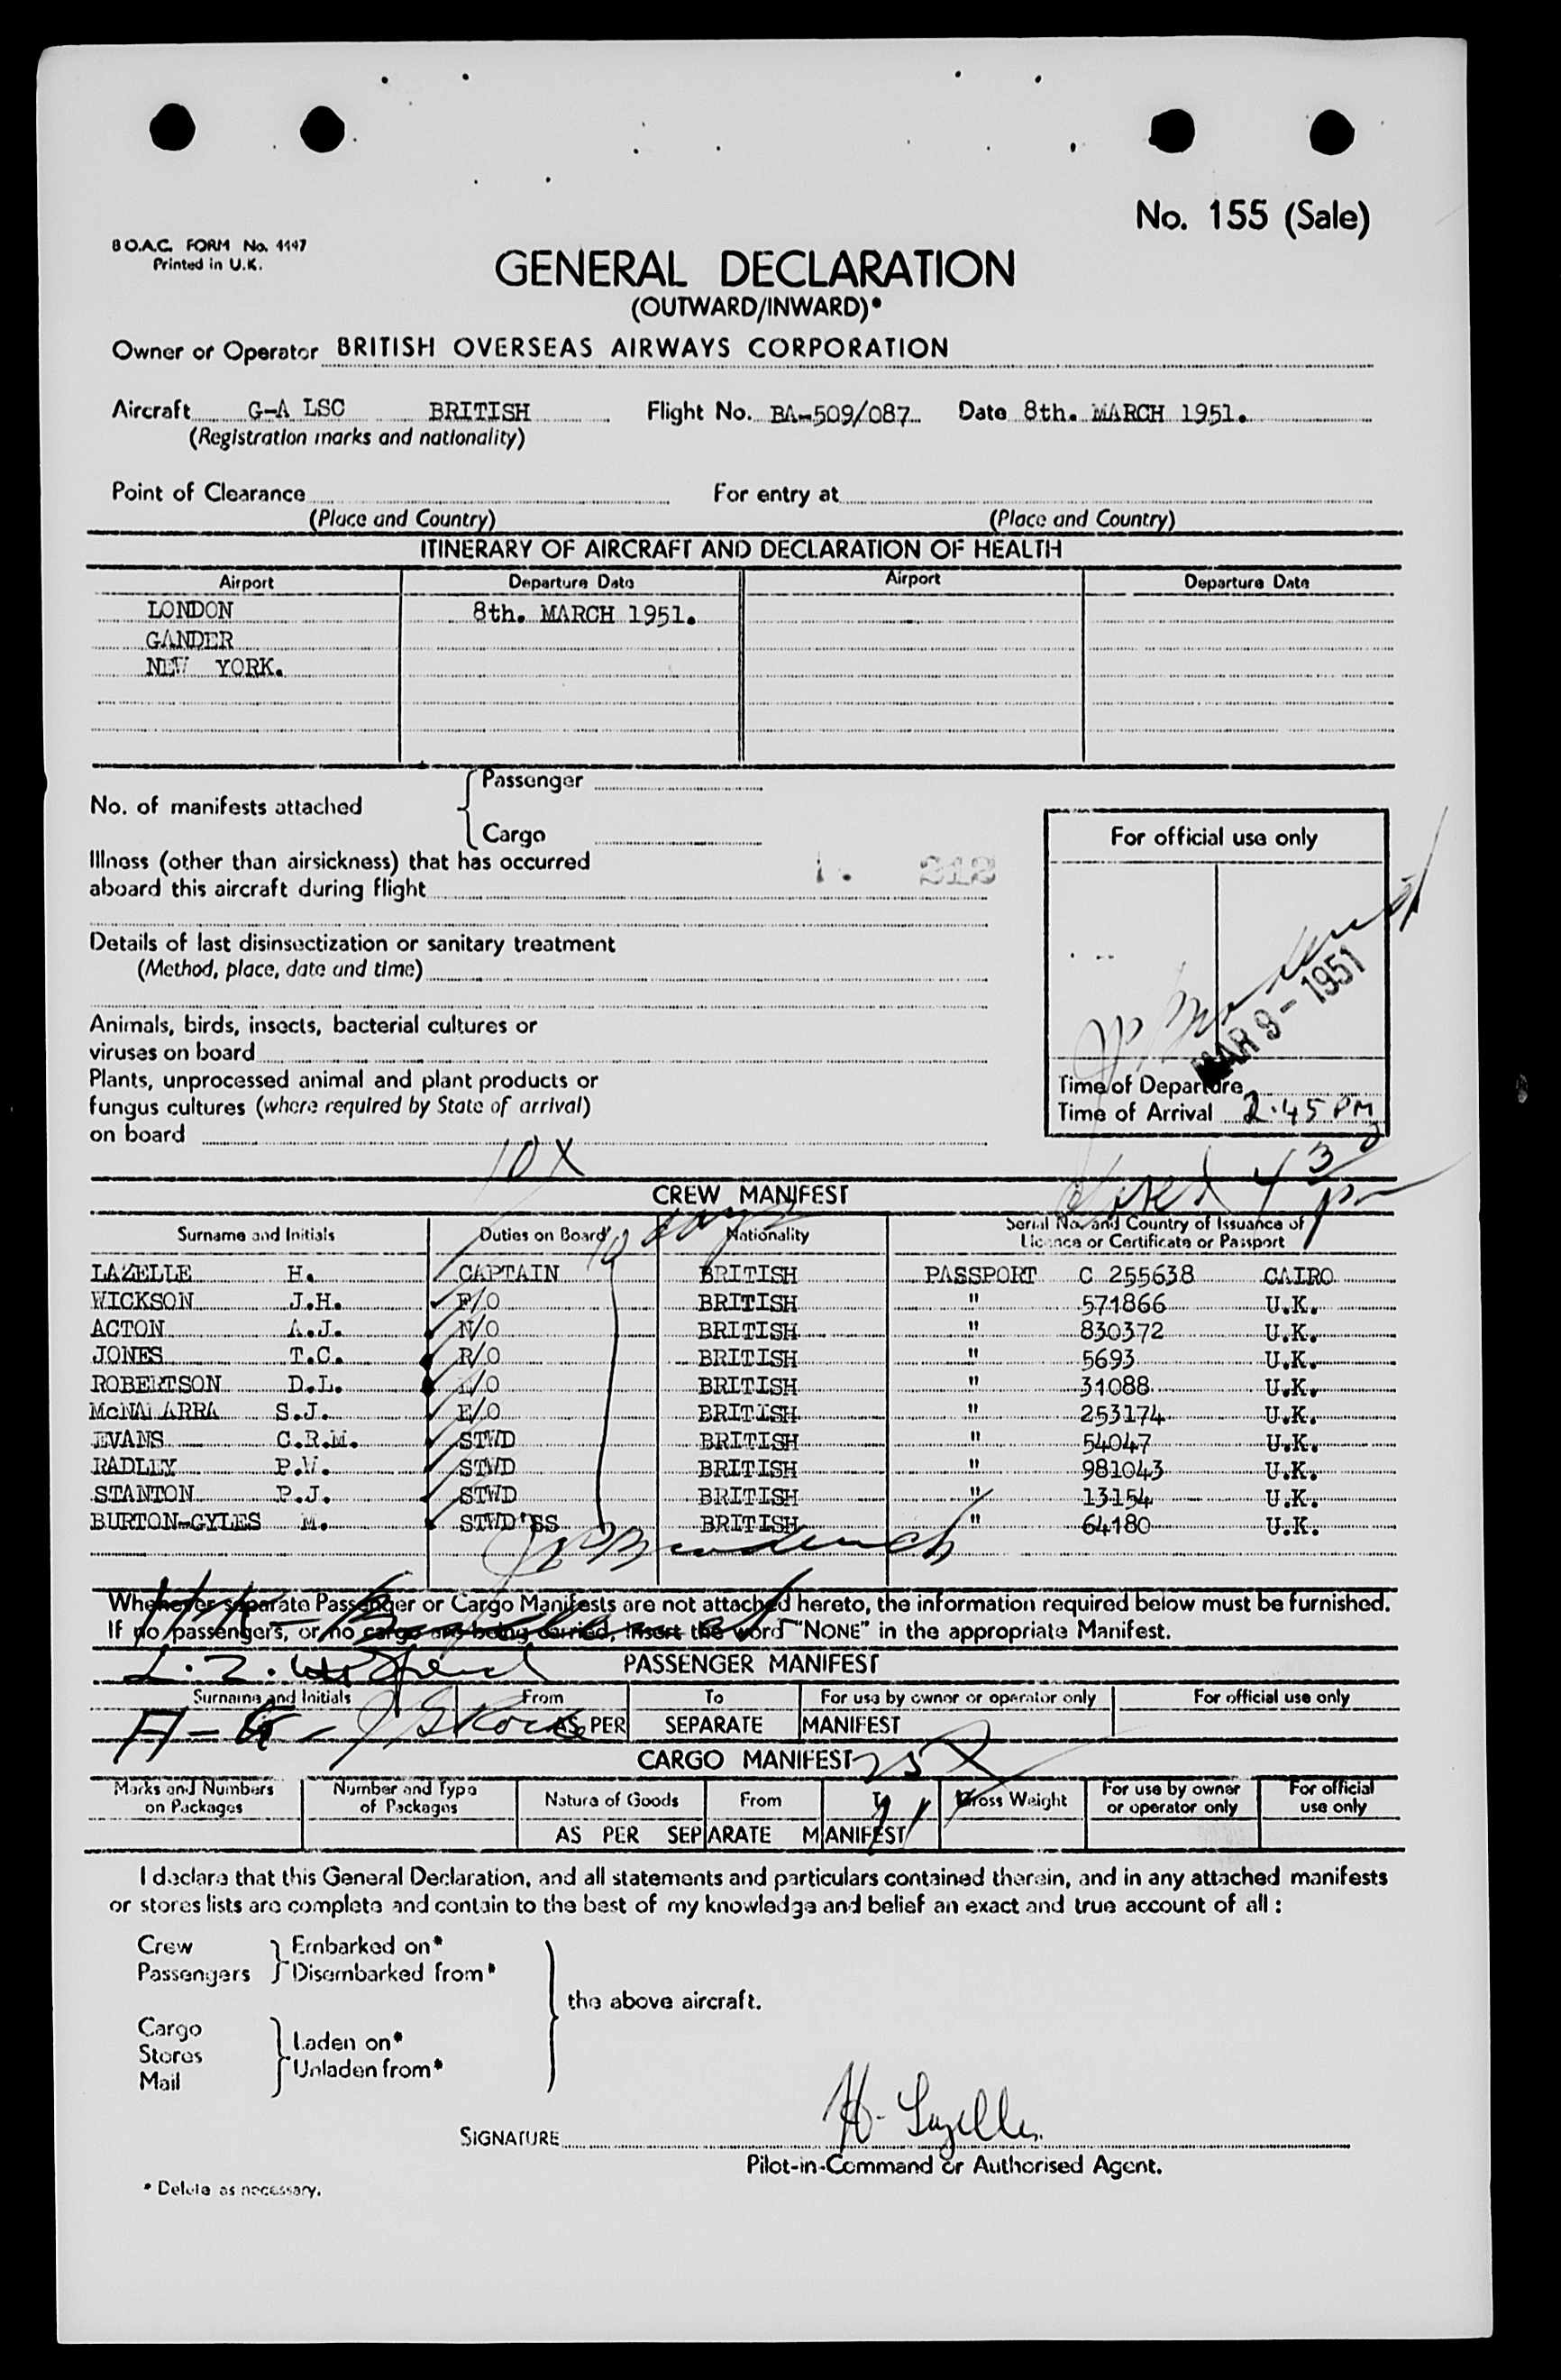 No. 155 (Sale)
B.O.A.C. FORM No. 4447
Printed in U.K.
GENERAL DECLARATION
(OUTWARD/INWARD)*
Owner or Operator BRITISH OVERSEAS AIRWAYS CORPORATION
Aircraft G-A LSC BRITISH Flight No. BA-509/087 Date 8th. MARCH 1951.
(Registration marks and nationality)
Point of Clearance For entry at
(Place and Country) (Place and Country)
ITINERARY OF AIRCRAFT AND DECLARATION OF HEALTH
Airport Departure Date Airport Departure Date
LONDON 8th. MARCH 1951.
GANDER
NEW YORK.
No. of manifests attached { Passenger
Cargo
For official use only
Illness (other than airsickness) that has occurred
aboard this aircraft during flight
Details of last disinsectization or sanitary treatment
(Method, place, date and time)
MAR 9 - 1951
Animals, birds, insects, bacterial cultures or
viruses on board
Plants, unprocessed animal and plant products or
fungus cultures (where required by State of arrival)
on board
Time of Departure
Time of Arrival 2.45 PM
10X
CREW MANIFEST
Surname and Initials Duties on Board Nationality Serial No. and Country of Issuance of
Licence or Certificate or Passport
LAZELLE H. CAPTAIN BRITISH PASSPORT C 255638 CAIRO
WICKSON J.H. F/O BRITISH " 571866 U.K.
ACTON A.J. N/O BRITISH " 830372 U.K.
JONES T.C. R/O BRITISH " 5693 U.K.
ROBERTSON D.L. /O BRITISH " 31088 U.K.
S.J. E/O BRITISH " 253174 U.K.
EVANS C.R.M. STWD BRITISH " 54047 U.K.
RADLEY P.W. STWD BRITISH " 981043 U.K.
STANTON P.J. STWD BRITISH " 13154 U.K.
BURTON-GYLES M. STWD'SS BRITISH " 64180 U.K.
Whenever separate Passenger or Cargo Manifests are not attached hereto, the information required below must be furnished.
If no passengers, or no cargo are being carried, insert the word "NONE" in the appropriate Manifest.
PASSENGER MANIFEST
Surname and Initials From To For use by owner or operator only For official use only
AS PER SEPARATE MANIFEST
CARGO MANIFEST
Marks and Numbers on Packages Number and Type of Packages Nature of Goods From To Gross Weight For use by owner or operator only For official use only
AS PER SEPARATE MANIFEST
I declare that this General Declaration, and all statements and particulars contained therein, and in any attached manifests
or stores lists are complete and contain to the best of my knowledge and belief an exact and true account of all :
Crew } Embarked on*
Passengers } Disembarked from*
the above aircraft.
Cargo
Stores } Laden on*
Mail } Unladen from*
SIGNATURE H. Lazelle
Pilot-in-Command or Authorised Agent.
* Delete as necessary.